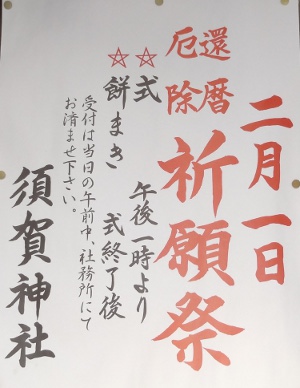 二月一日
還暦
厄除
祈願祭
☆式 午後一時より
☆餅まき 式終了後
受付は当日の午前中、社務所にて
お済ませ下さい。
須賀神社